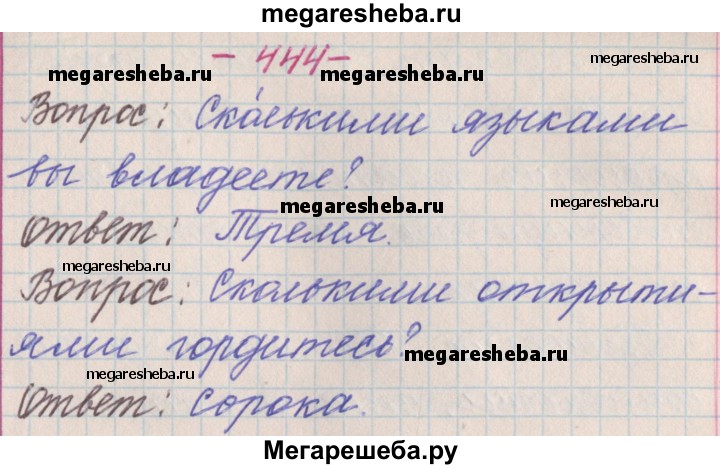 megaresheba.ru
- 444 -
megaresheba.ru megaresheba.ru
Вопрос: Ско́лькими языками
вы владеете?
megaresheba.ru
Ответ: Тремя.
megaresheba.ru
Вопрос: Сколькими откры­ти-
ями гордитесь?
megaresheba.ru
megaresheba.ru
Ответ: Сорока.
Мегарешеба.ру